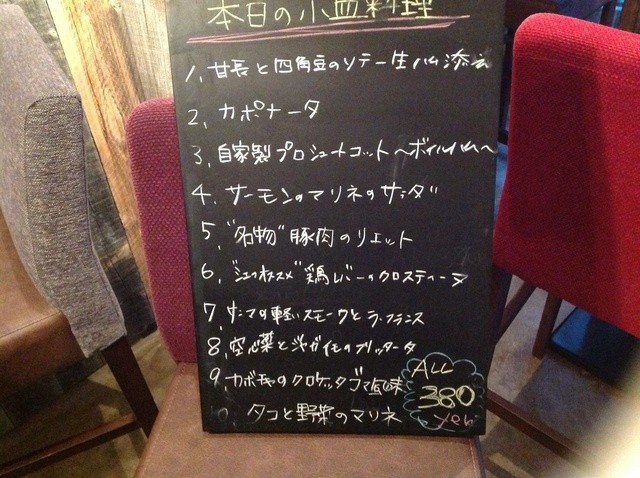 本日の小皿料理
1. 甘長と四角豆のソテー生ハム添え
2. カポナータ
3. 自家製プロシュートコット〜ボイルハム〜
4. サーモンのマリネのサラダ
5. "名物"豚肉のリエット
6. "シェフオススメ"鶏レバーのクロスティーヌ
7. サンマの軽いスモークとラ・フランス
8. 空心菜とジャガイモのフリッタータ
9. カボチャのクロケッタゴマ風味
タコと野菜のマリネ
ALL
380
yen